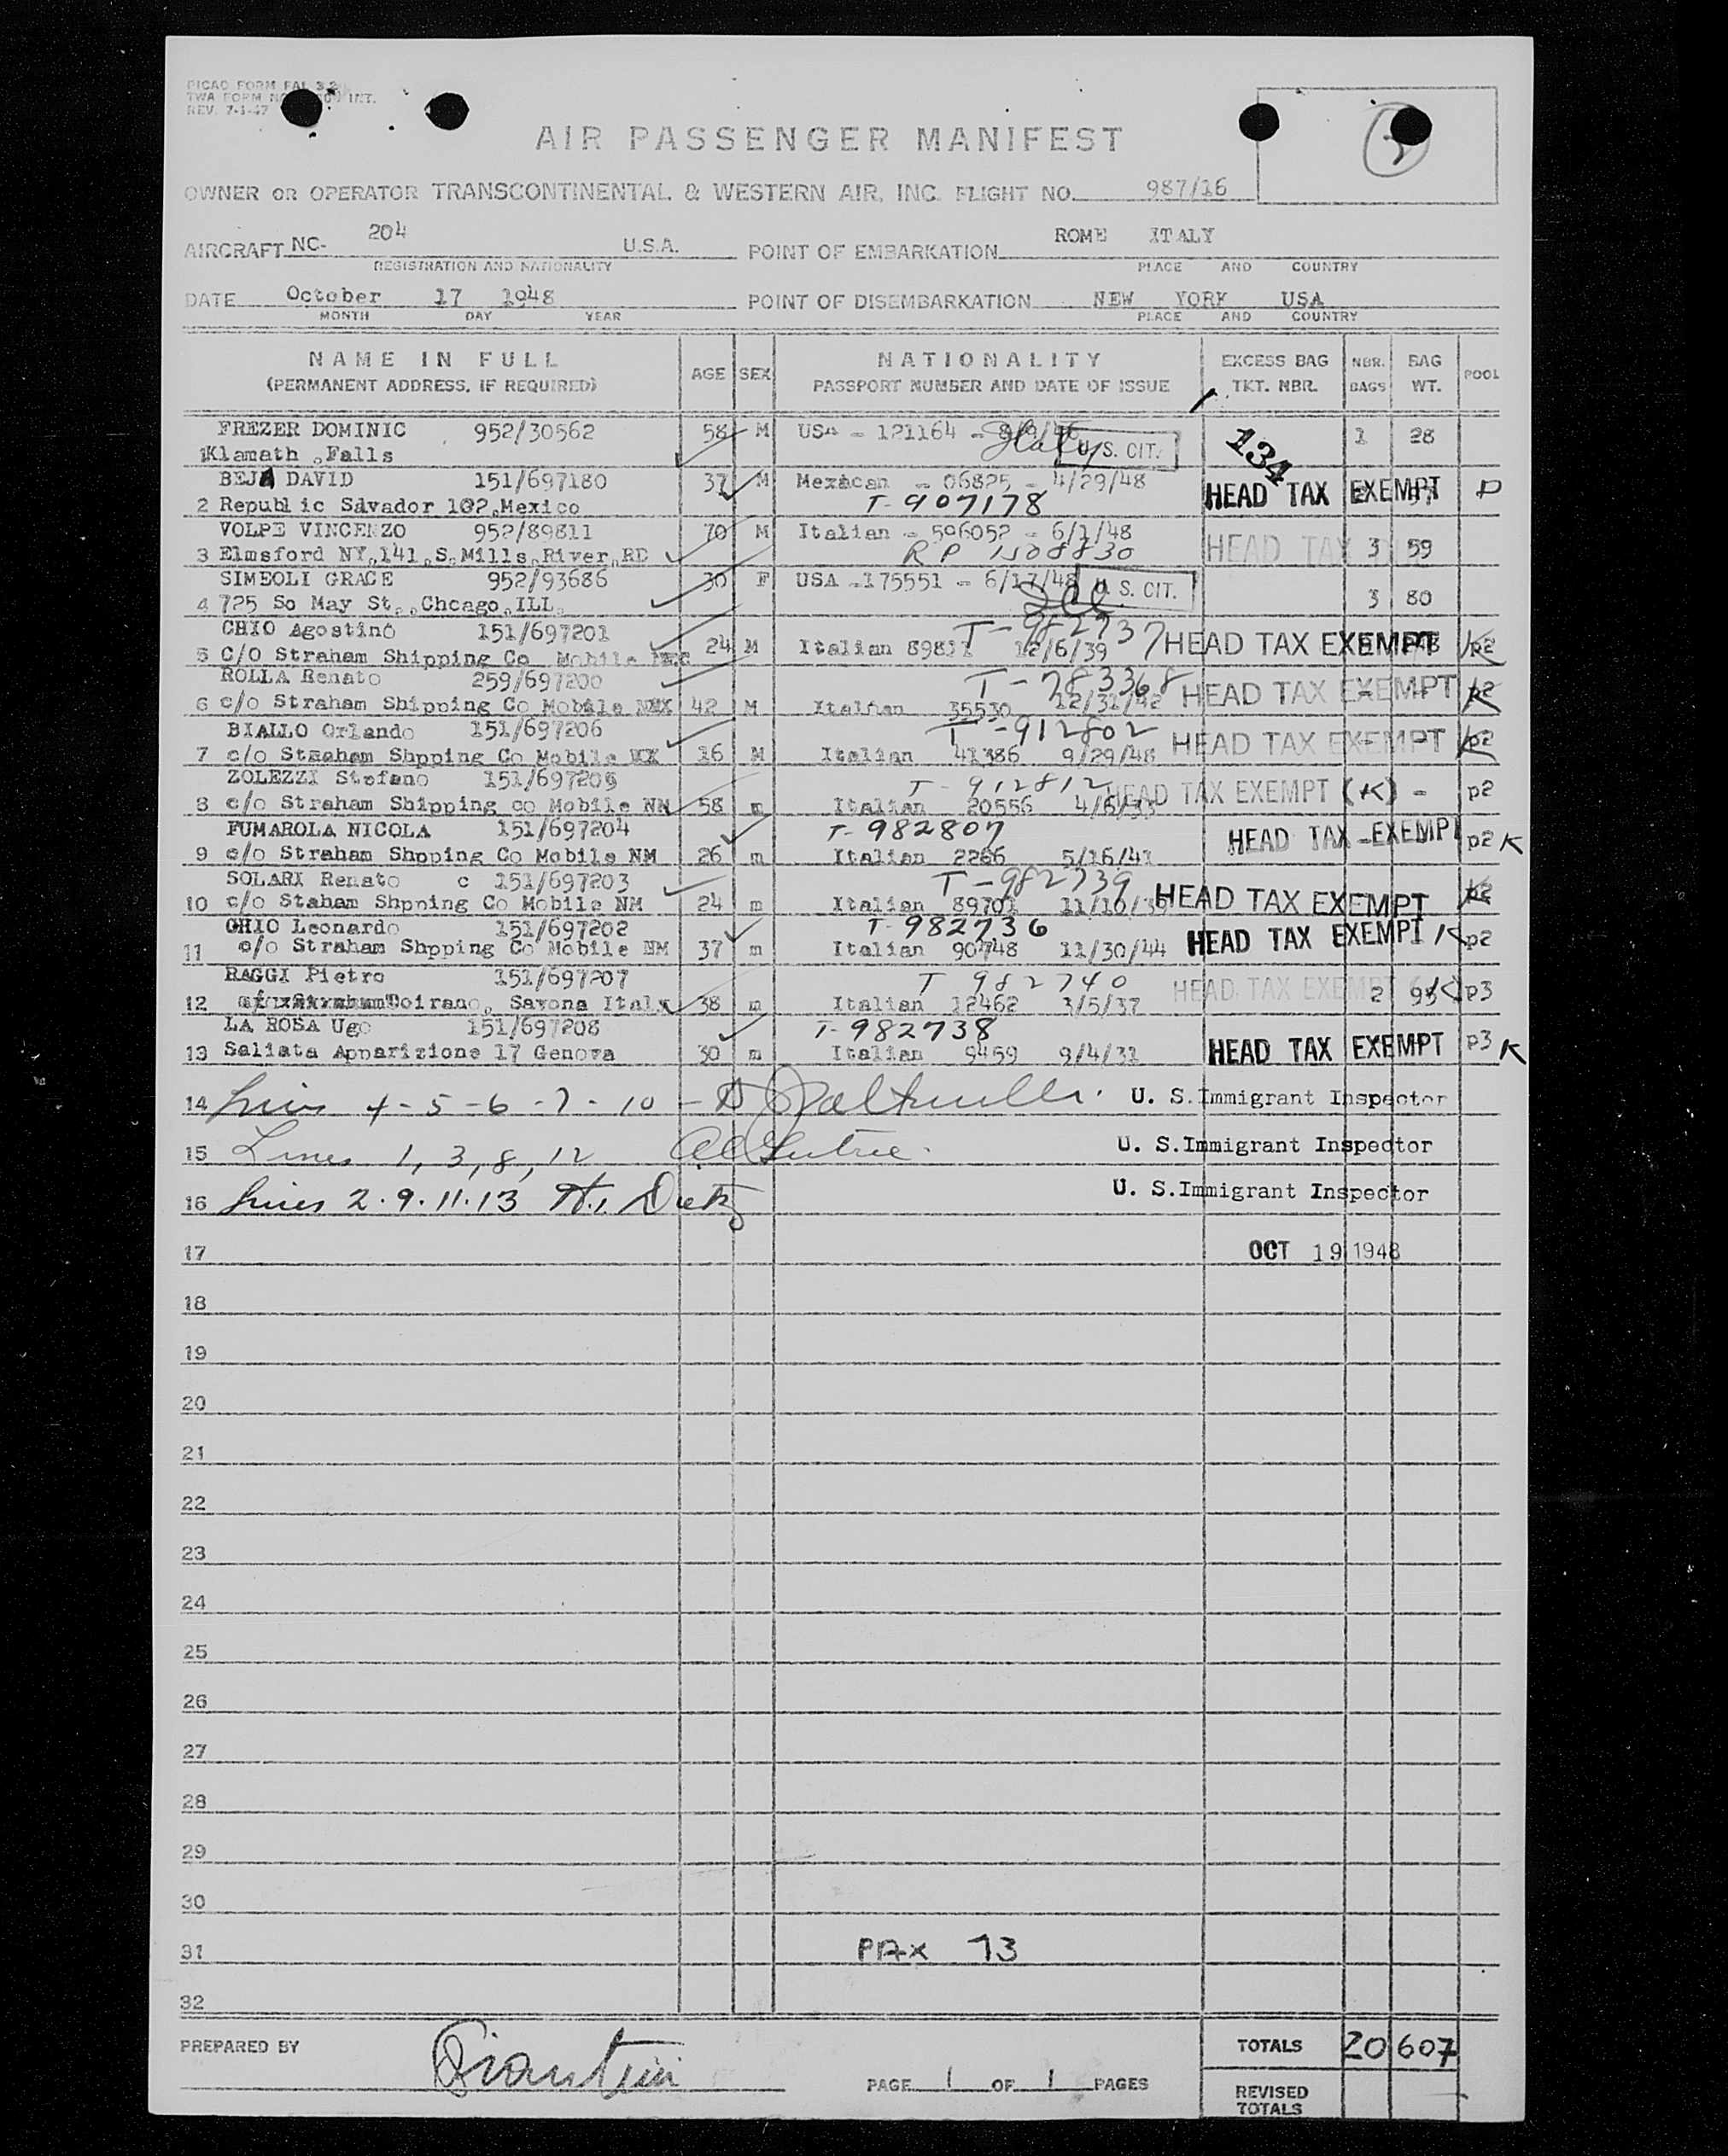 PICAO FORM FAL 3.2
TWA FORM INT.
REV. 7-1-47
AIR PASSENGER MANIFEST
OWNER OR OPERATOR TRANSCONTINENTAL & WESTERN AIR, INC. FLIGHT NO. 987/16
AIRCRAFT NC- 204 U.S.A. POINT OF EMBARKATION ROME ITALY
REGISTRATION AND NATIONALITY PLACE AND COUNTRY
DATE October 17 1948 POINT OF DISEMBARKATION NEW YORK USA
MONTH DAY YEAR PLACE AND COUNTRY
NAME IN FULL AGE SEX NATIONALITY EXCESS BAG NBR. BAG POOL
(PERMANENT ADDRESS, IF REQUIRED) PASSPORT NUMBER AND DATE OF ISSUE TKT. NBR. BAGS WT.
FREZER DOMINIC 952/30562 58 M USA - 121164 - Italy U.S. CIT. 134 1 28
1 Klamath ,Falls
BEJA DAVID 151/697180 37 M Mexican - 06825 - 4/29/48
2 Republic Salvador 102,Mexico T-907178 HEAD TAX EXEMPT P
VOLPE VINCENZO 952/89811 70 M Italian - 596052 - 6/1/48
3 Elmsford NY,141,S.Mills,River,RD R P 1508830 HEAD TAX 3 59
SIMEOLI GRACE 952/93686 30 F USA -175551 - 6/17/48 U.S. CIT.
4 725 So May St.,Chcago,ILL. 3 80
GHIO Agostino 151/697201 T-982737 HEAD TAX EXEMPT p2
5 C/O Straham Shipping Co Mobile 24 M Italian 12/6/39
ROLLA Renato 259/697200 T-783368 HEAD TAX EXEMPT p2
6 c/o Straham Shipping Co Mobile 42 M Italian 35530 12/31/42
BIALLO Orlando 151/697206 T-912802 HEAD TAX EXEMPT p2
7 c/o Straham Shpping Co Mobile 16 M Italian 41386 9/29/48
ZOLEZZI Stefano 151/697209 T-912812 HEAD TAX EXEMPT (K) - p2
8 c/o Straham Shipping co Mobile NM 58 m Italian 20556
FUMAROLA NICOLA 151/697204 T-982807 HEAD TAX EXEMPT p2 K
9 c/o Straham Shpping Co Mobile NM 26 m Italian 2266 5/16/41
SOLARI Renato c 151/697203 T-982739 HEAD TAX EXEMPT p2
10 c/o Staham Shpping Co Mobile NM 24 m Italian 89701 11/10/39
GHIO Leonardo 151/697202 T-982736 HEAD TAX EXEMPT K p2
11 c/o Straham Shpping Co Mobile NM 37 m Italian 90748 11/30/44
RAGGI Pietro 151/697207 T 982740 HEAD TAX EXEMPT 2 K p3
12 Toirano, Savona Italy 38 m Italian 12462 3/5/37
LA ROSA Ugo 151/697208 T-982738 HEAD TAX EXEMPT p3 K
13 Saliata Apparizione 17 Genova 30 m Italian 9459 9/4/31
14 Lines 4-5-6-7-10 - U. S. Immigrant Inspector
15 Lines 1, 3, 8, 12 U. S. Immigrant Inspector
16 Lines 2.9.11.13 U. S. Immigrant Inspector
17 OCT 19 1948
18
19
20
21
22
23
24
25
26
27
28
29
30
31 PAX 13
32
PREPARED BY TOTALS 20 607
PAGE 1 OF 1 PAGES REVISED TOTALS